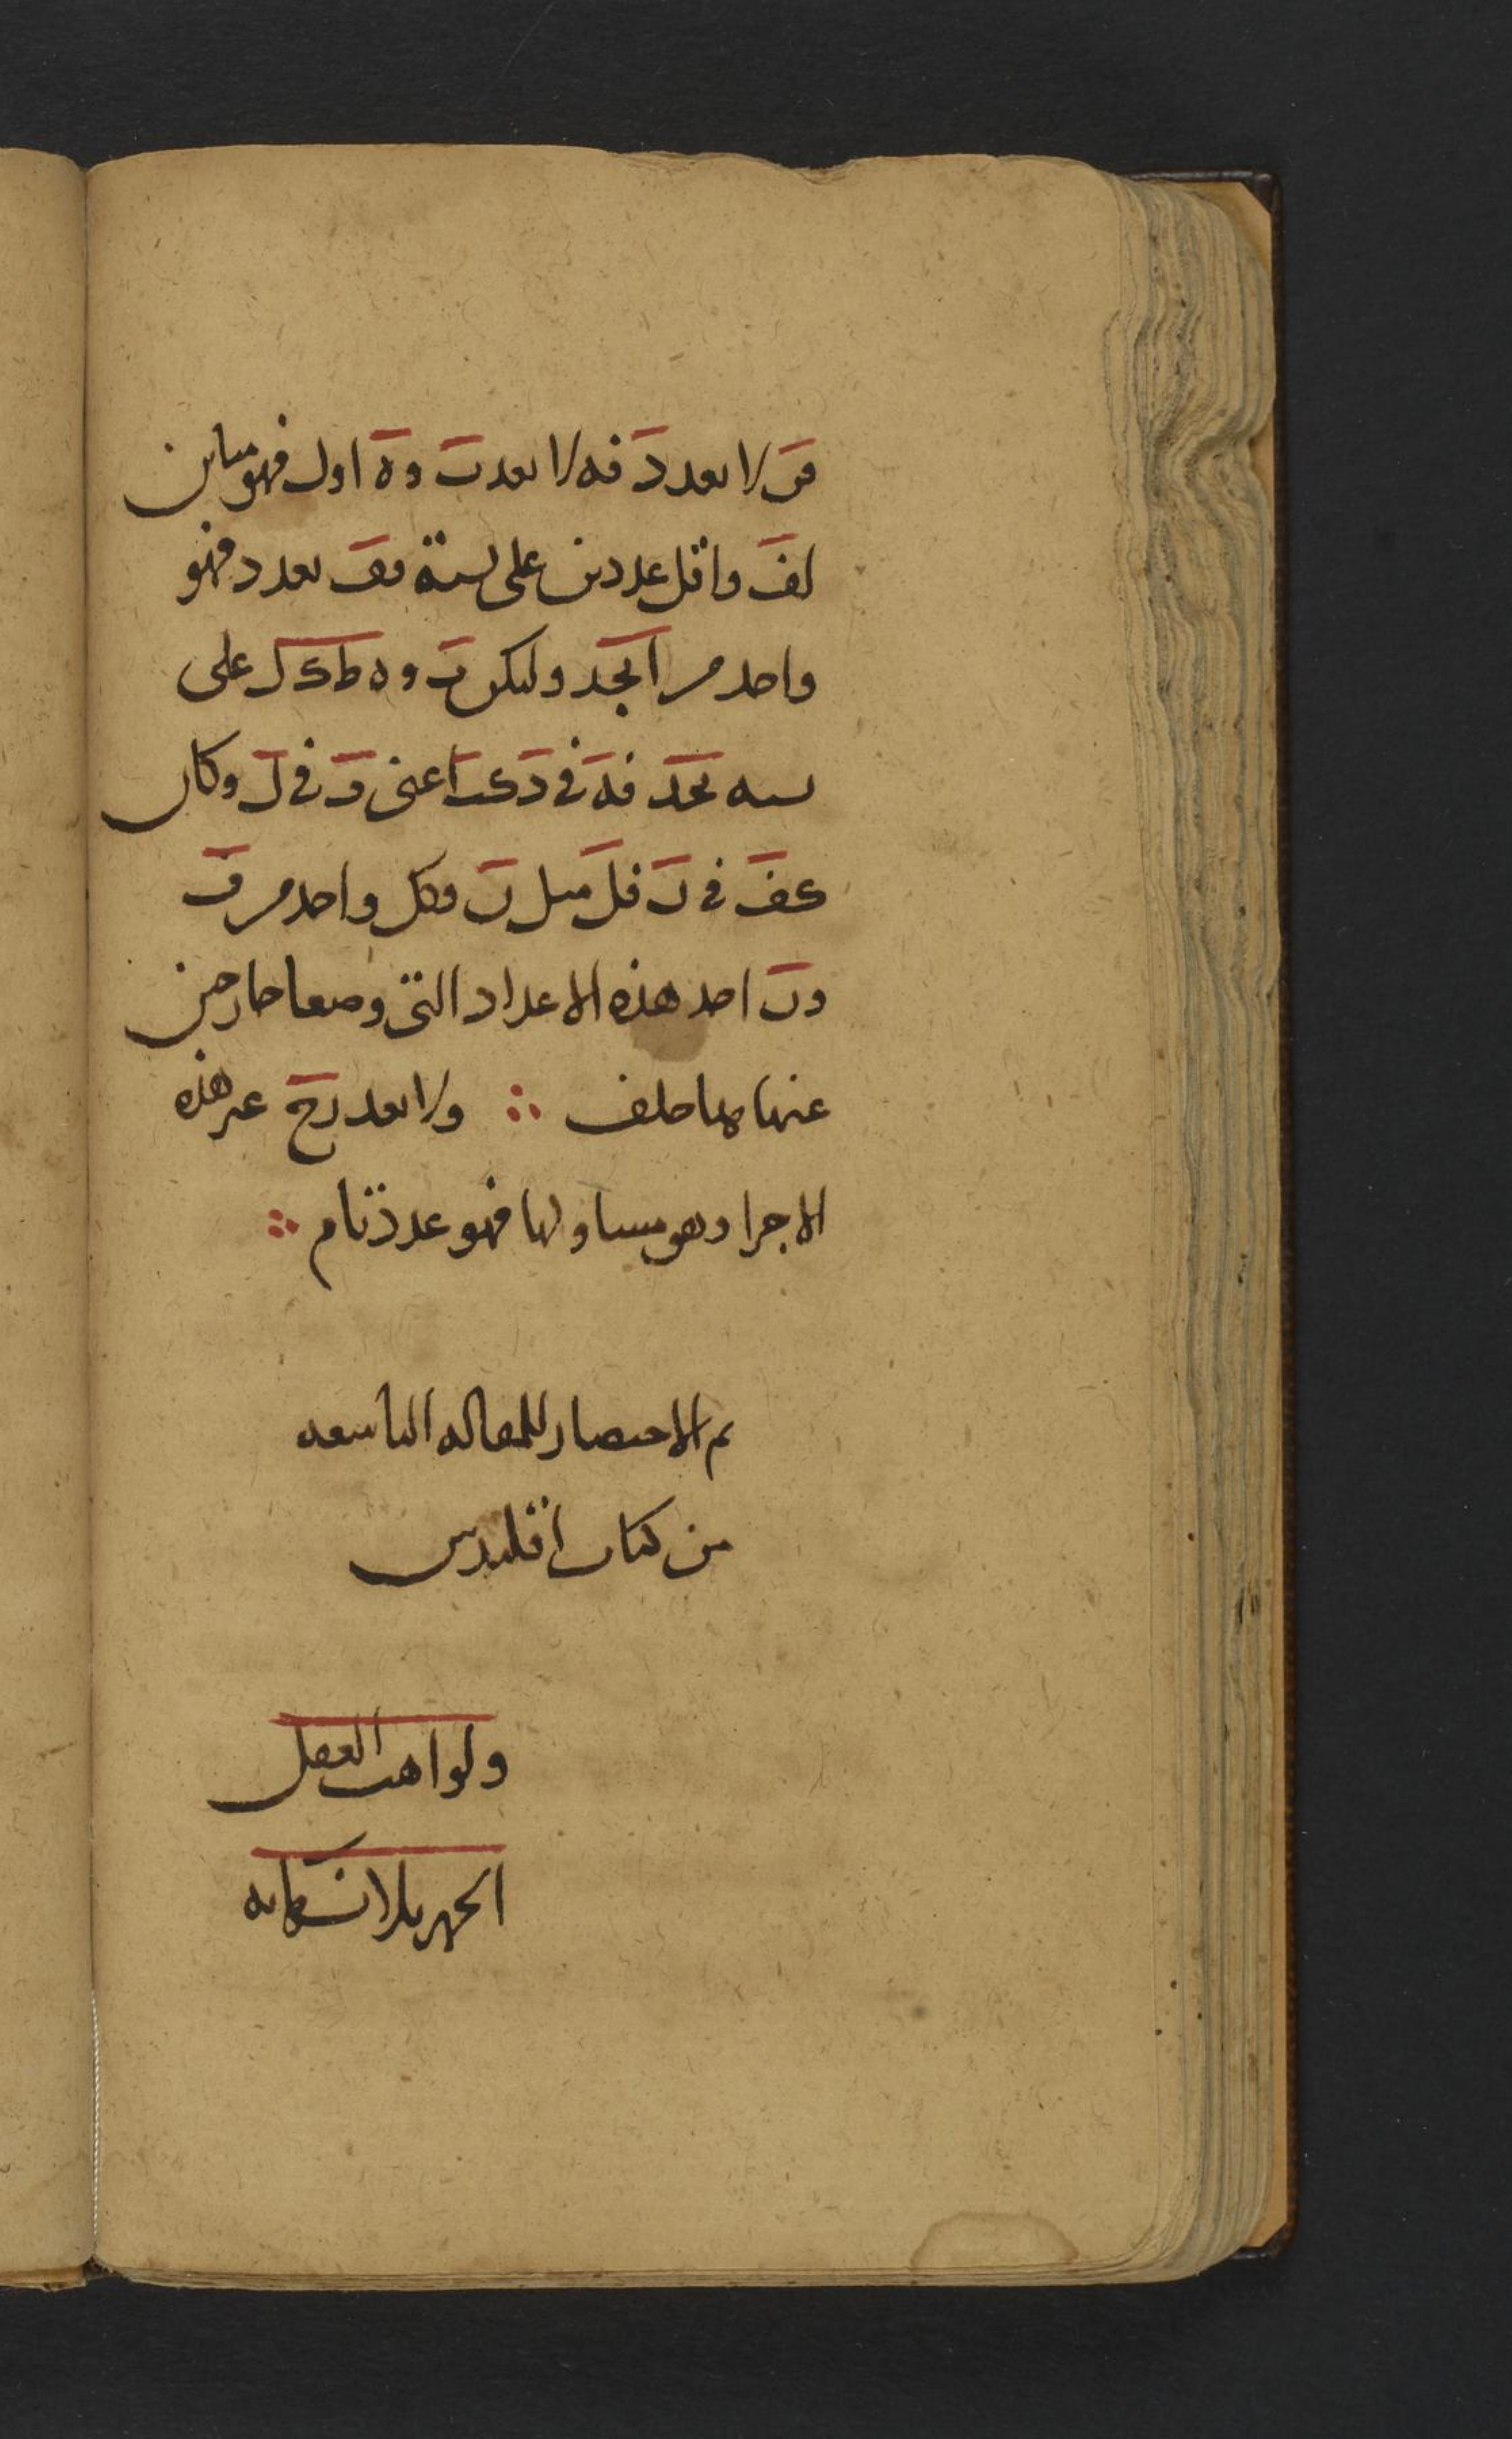 فَ لا يعد دَ فه لا يعد تَ و هَ اول فهو مباين
لفَ واقل عددين على نسبة ففَ يعد د فهو
واحد من ابجد وليكن بَ و ه ط كَ لَ على
نسبه بجد فهَ في دَ كبَ اعني فَ في لَ وكان
كفَ في نَ فلَ مثل نَ وكل واحد من فَ
ونَ احد هذه الاعداد التي وضعا خارجين
عنها هذا خلف ∴ ولا يعد رح غير هذه
الاجزا وهو مساو لها فهو عدد تام ∴
تم الاختصار للمقاله التاسعه
من كتاب اقليدس
ولواهب العقل
الحمد بلا نهايه